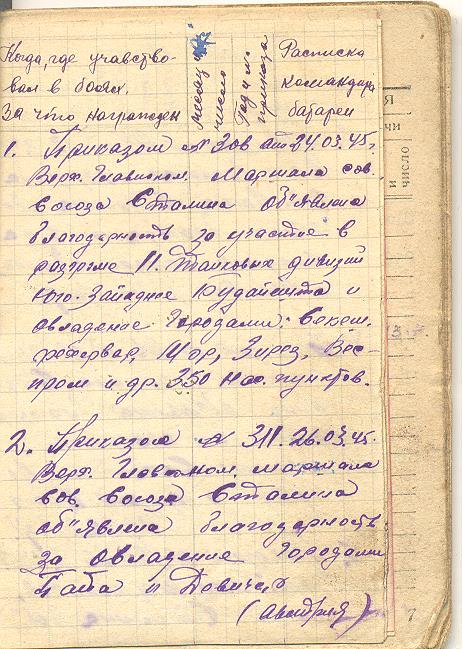 Когда, где учавство-
вал в боях.
За что награжден
месяц и
число
Год и №
приказа
Расписка
командира
батареи
1. Приказом № 306 от 24.03.45г.
Верх. Главноком. Маршала сов.
союза Сталина об"явлена
благодарность за участие в
разгроме 11. танковых дивизий
юго-западнее Будапешта и
овладение городами: Секеш-
фехервар, Мор, Зирез, Вес-
прем и др. 350 нас. пунктов.
2. Приказом № 311. 26.03.45г.
Верх. Главноком. маршала
сов. союза Сталина
об"явлена благодарность
за овладение городами
Папа и Девичер
(Австрия)
Я
чи
и
число
7